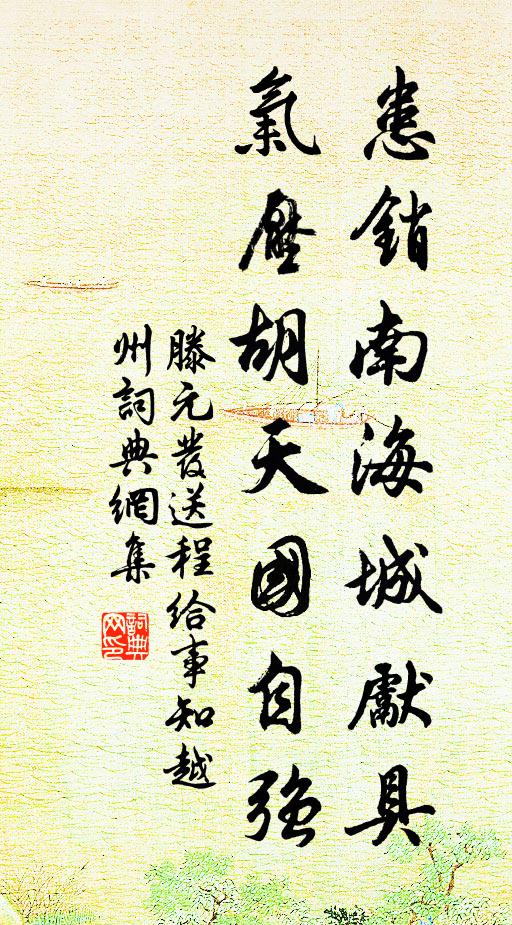 患銷南海城獻具
氣壓胡天國自強
滕元發送程給事知越
州詞典網集
詞典
网印